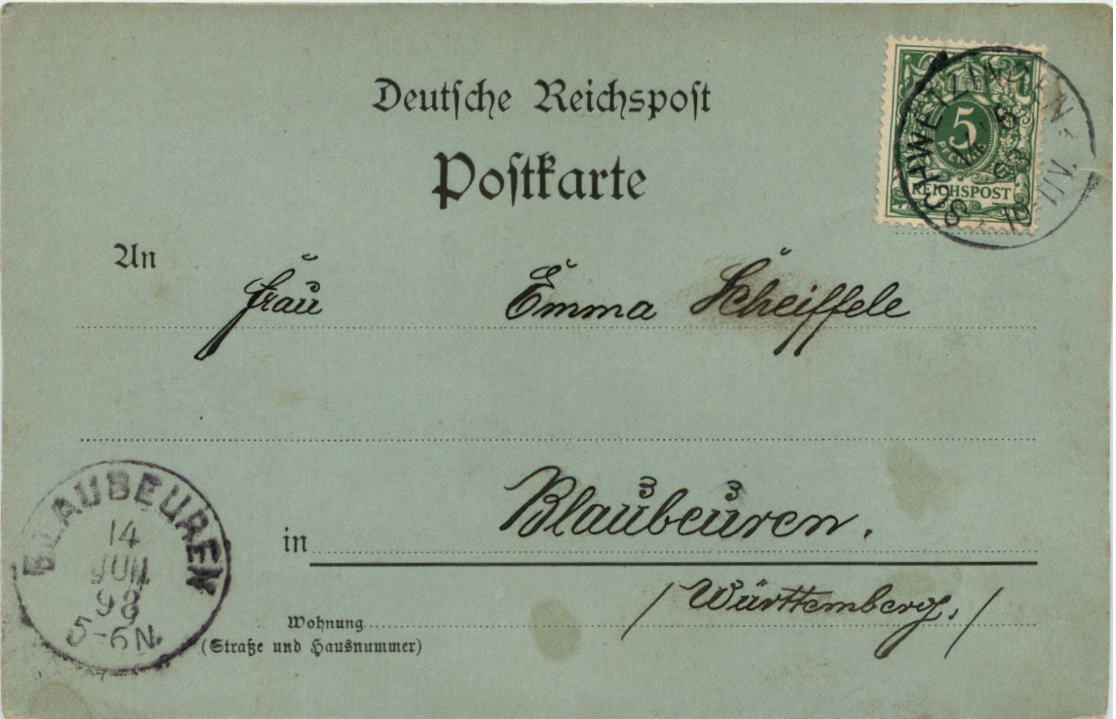 Deutsche Reichspost
Postkarte
5
PFENNIG
REICHSPOST
SCHWETZINGEN
An Frau Emma Scheiffele
in Blaubeuren.
/ Württemberg. /
Wohnung
(Straße und Hausnummer)
BLAUBEUREN
14
JUN
98
5-6N.